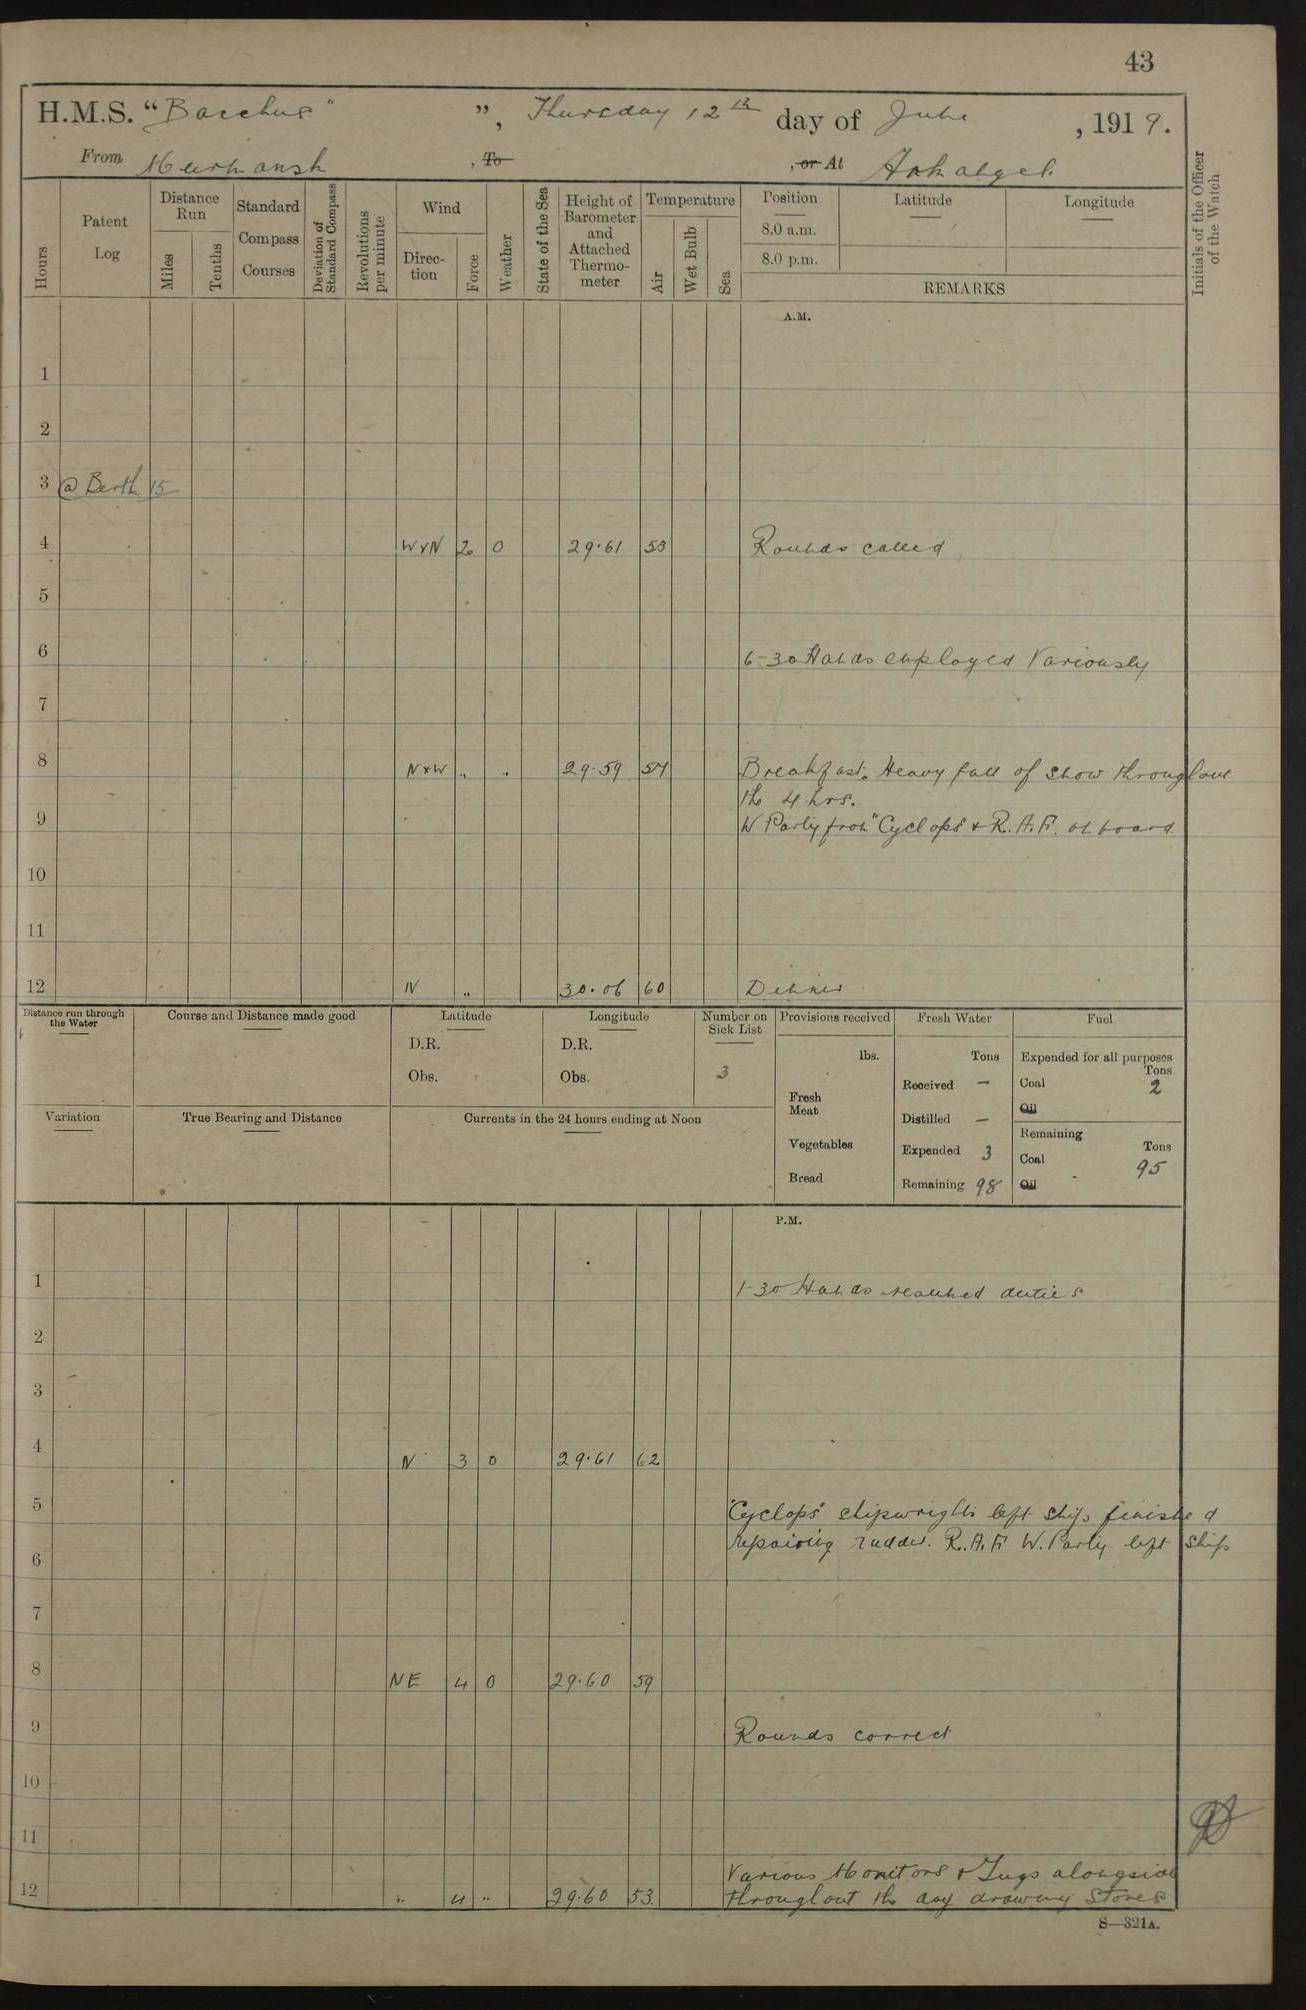 43
H.M.S. "Bacchus" ", Thursday 12th day of June, 1919.
From Murmansk, To, or At Arkangel.
Hours
Patent Log
Distance Run
Miles
Tenths
Standard Compass Courses
Deviation of Standard Compass
Revolutions per minute
Wind
Direction
Force
Weather
State of the Sea
Height of Barometer and Attached Thermometer
Temperature
Air
Wet Bulb
Sea
Position
8.0 a.m.
8.0 p.m.
Latitude
Longitude
REMARKS
Initials of the Officer of the Watch
A.M.
1
2
3 @ Berth 15
4 WxN 2 0 29.61 53 Rounds called
5
6 6-30 Hands employed Variously
7
8 NxW " " 29.59 54 Breakfast. Heavy fall of snow throughout
the 4 hrs.
9 W Party from "Cyclops" & R.A.F. on board
10
11
12 N " 30.06 60 Dinner
Distance run through the Water
Course and Distance made good
Latitude
D.R.
Obs.
Longitude
D.R.
Obs.
Number on Sick List
3
Provisions received
lbs.
Fresh Meat
Vegetables
Bread
Fresh Water
Tons
Received —
Distilled —
Expended 3
Remaining 98
Fuel
Expended for all purposes
Tons
Coal 2
Oil
Remaining
Tons
Coal 95
Oil
Variation
True Bearing and Distance
Currents in the 24 hours ending at Noon
P.M.
1 1-30 Hands resumed duties
2
3
4 N 3 0 29.61 62
5 "Cyclops" shipwrights left ship finished
6 repairing rudder. R.A.F. W. Party left ship
7
8 NE 4 0 29.60 59
9 Rounds correct
10
11
Various Monitors & Tugs alongside
12 " 4 " 29.60 53 throughout the day drawing Stores
S—321A.